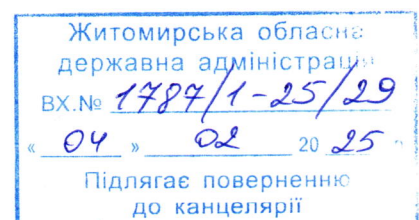 Житомирська обласна
державна адміністрація
ВХ.№ 1787/1-25/29
« 04 » 02 20 25
Підлягає поверненню
до канцелярії